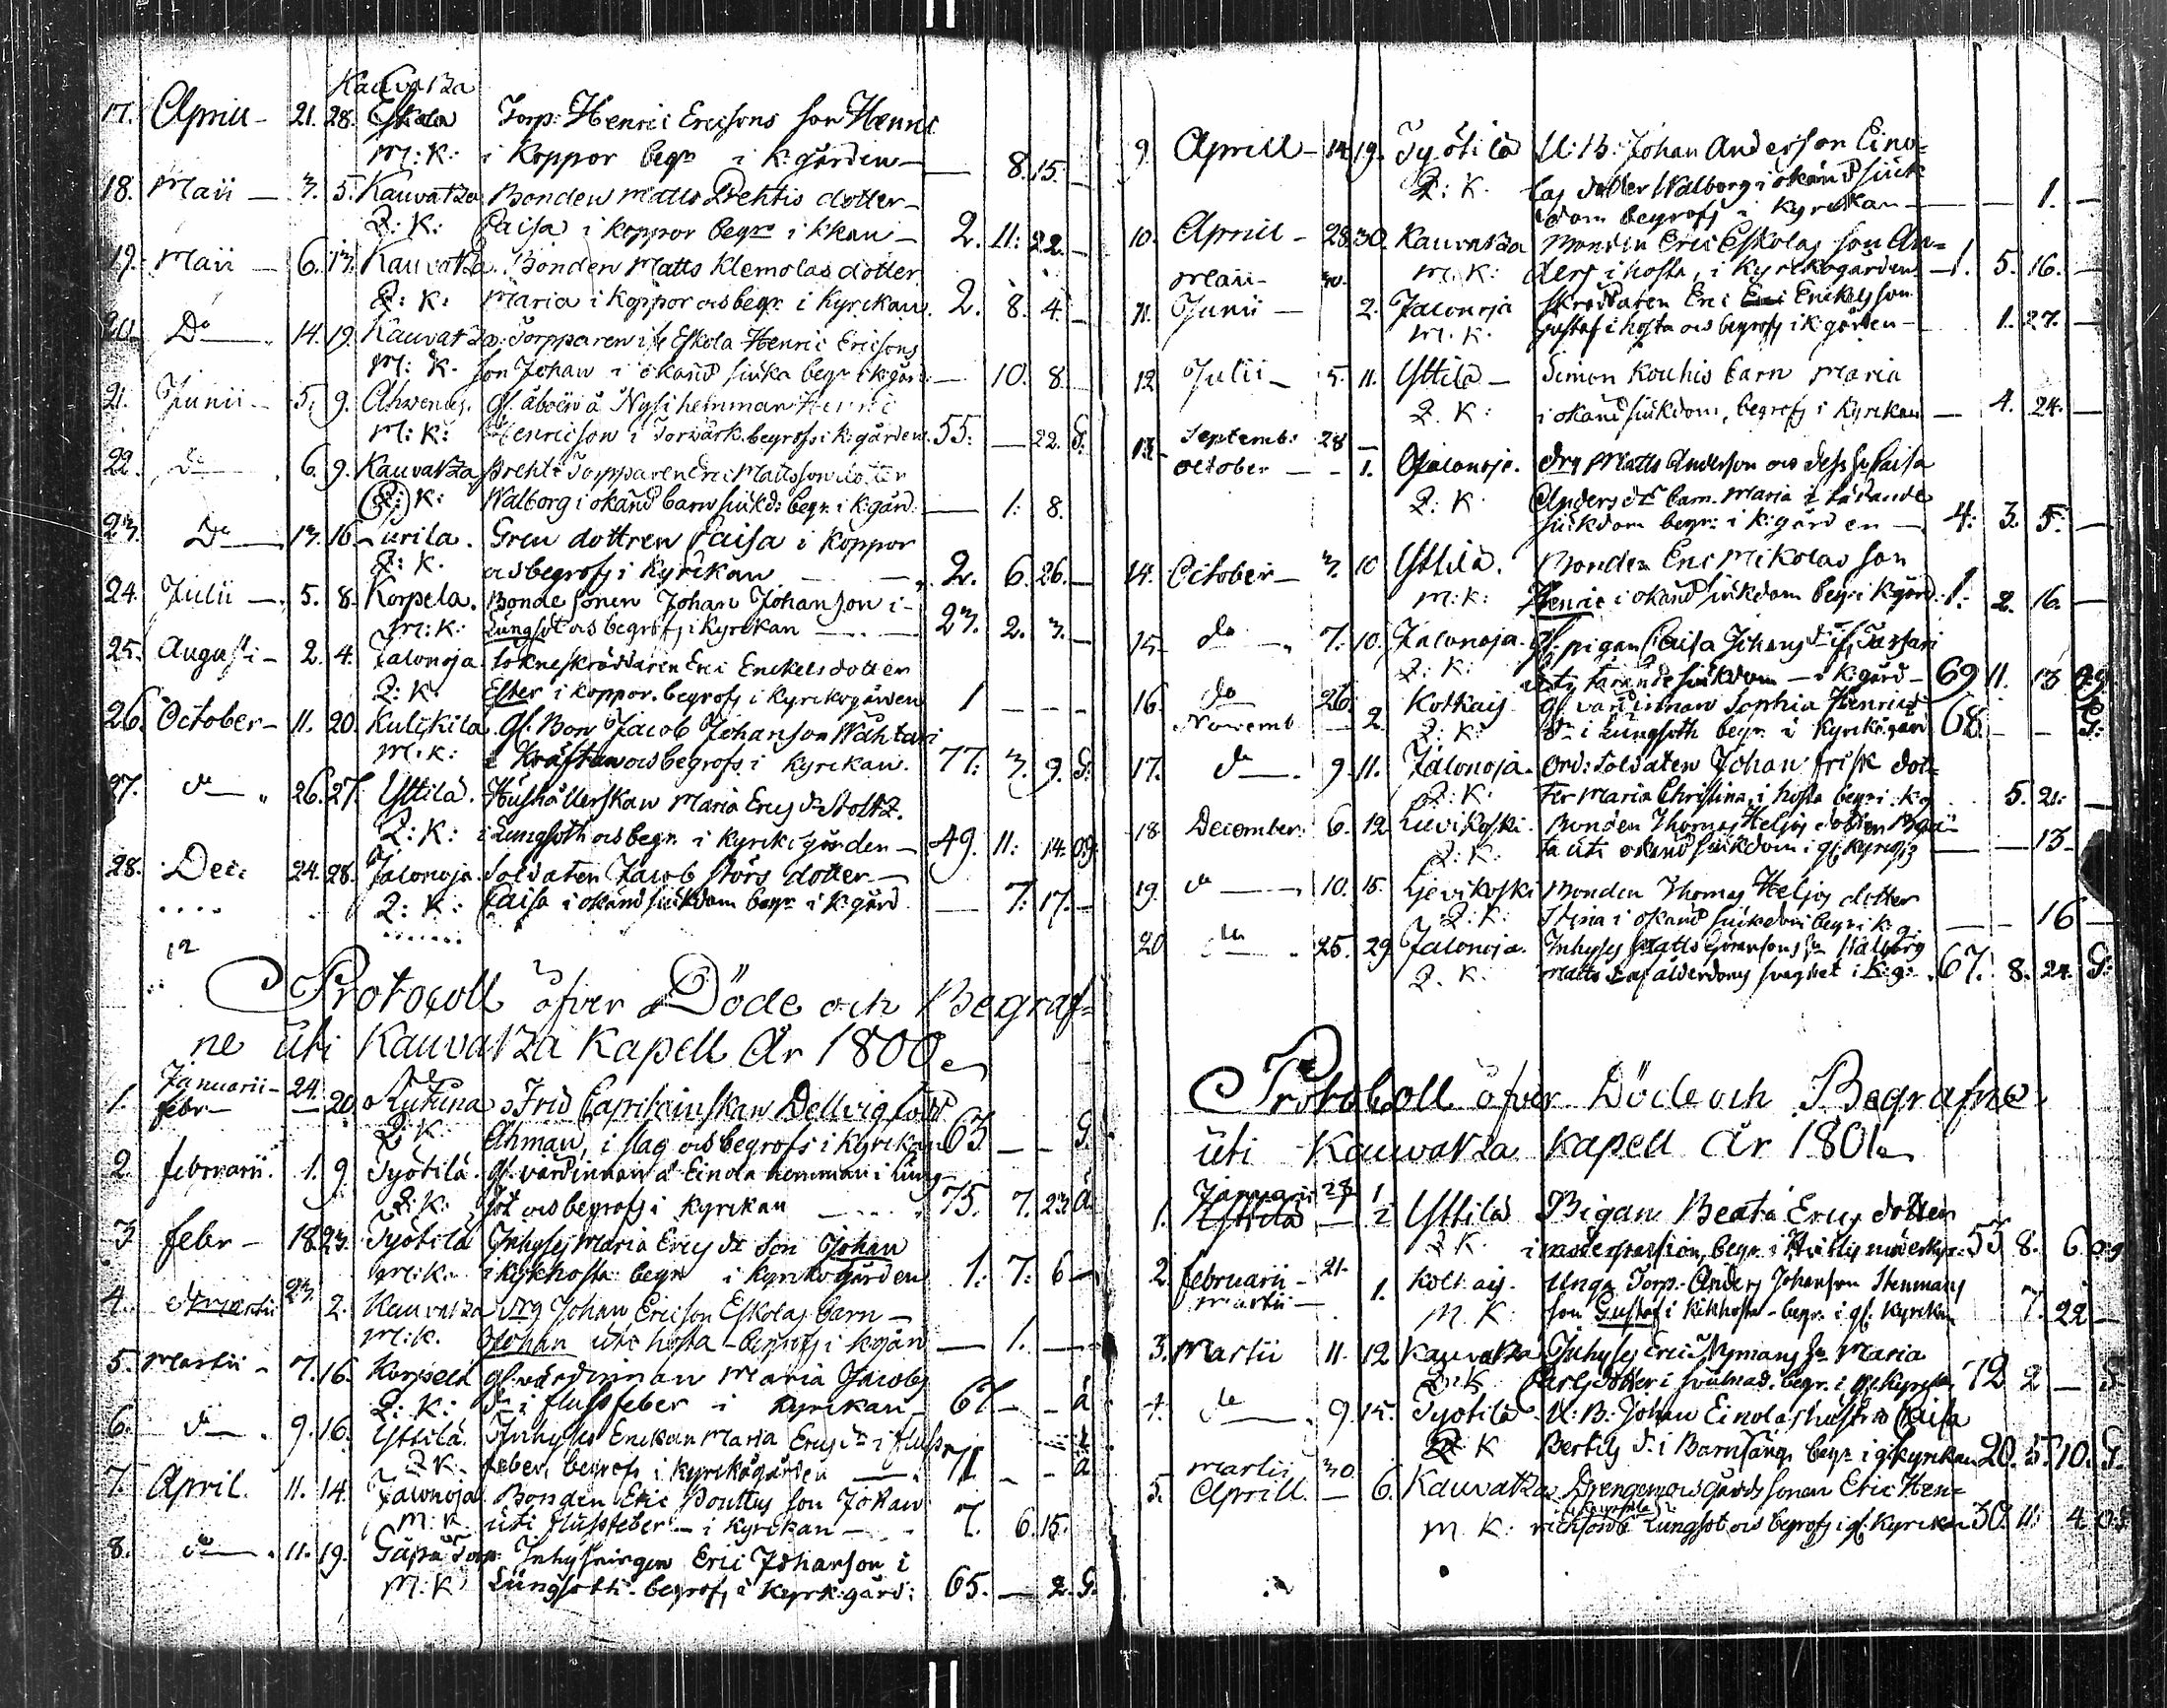 Kauvatza
17. Aprill - 21. 28. Eskola Torp: Henric Ericsons son Henric
M: K: i Koppor begr. i K:gården - 8. 15. -
18. Maii - 3. 5. Kauvatza Bonden Matts Prehtis dotter -
Q: K: Caisa i koppor begr i kkan - 2. 11. 22. -
19. Maii - 6. 13. Kauvatza. Bonden Matts Klemolas dotter
Q: K: Maria i Koppor och begr. i Kyrckan. 2. 8. 4. -
20. Do - 14. 19. Kauvatza. Torpparen if Eskola Henric Ericsons
M: K. son Johan i okänd siuka begr. i k:gård. - 10. 8. -
21. Junii - 5. 9. Ahvenus. gl. åboen å Nysi hemman Henric
M: K: Henricson i Torrvärk. begrofs i k:gården. 55: - 22. G:
22. do - 6. 9. Kauvatza Prehti Torpparen Eric Mattsson dotter
Q: K: Walborg i okänd barnsiukd: begr: i k:gård. - 1: 8.
23. Do - 13. 16. Lurila. Gren dottren Caisa i Koppor
Q: K. och begrofs i Kyrckan - 2. 6. 26. -
24. Julii - 5. 8. Korpela. Bonde sonen Johan Johanson i -
M: K: Lungsot och begrofs i Kyrckan - 23. 2. 3. -
25. Augusti - 2. 4. Jalonoja. Sokneskräddaren Eric Enckels dotter
Q: K. Ester i koppor. begrofs i Kyrckogården 1 - - -
26. October - 11. 20. Kulckila. Gl. Bon: Jacob Johanson Wähtari
M: K: i Kräftan och begrofs i Kyrckan. 77: 3. 9. G:
27. do - 26. 27. Yttilä. Hushållerskan Maria Ers dr Stoltz.
Q: K: i Lungsoth och begr. i Kyrckigården - 49. 11: 14. og.
28. Dec: 24. 28. Jalonoja. Soldaten Jacob Störs dotter -
Q: K: Caisa i okänd siukdom begr. i k:gård - 7: 17. -
Protocoll öfver Döde och Begraf=
ne uti Kauvatza Kapell År 1800.
Januarii - 24.
1. febr - - 20. Lutuna Frid Capitainskan Dellvig född
Q: K: Ahman, i slag och begrofs i Kyrckan 63 - - G
2. februarii. 1. 9. Työtilä. gl. värdinnan å Einola hemman i Lung-
Q: K: sot och begrofs i Kyrckan - 75. 7. 23. å.
3 febr - 18. 23. Työtilä Inhyses Maria Ers dr Son Johan
M: K. i Kikhosta: begr i Kyrckogården 1: 7: 6 -
4. Martii 23 2. Kauvatza drg Johan Ericson Eskolas barn -
M: K. Johan uti hosta - begrofs i k:gård - 1. - -
5. Martii - 7. 16. Korpela gl. värdinnan Maria Jacobs
Q: K: dr i flussfeber i Kyrckan - 67 - - å
6. do - 9. 16. Yttilä. Inhyses Enckan Maria Ers dr i fluss
Q K. feber, begrofs i Kyrckogården - 71 - - å
7. April. 11. 14. Jalonoja. Bonden Eric Pouttus son Johan
M: K. uti flussfeber - i Kyrckan - 7. 6. 15.
8. do - 11. 19. Torp: Inhysningen Eric Johanson i
M: K Lungsoth - begrofs i Kyrk:gård: 65. - 2. G.
9. Aprill - 14. 19. Työtilä U: B: Johan Anderson Eino=
Q: K. las dotter Walborg i okänd siuk
dom begrofs i Kyrckan - - 1. -
10. Aprill - 28. 30. Kauvatza Bonden Eric Eskolas son An=
Maii - 30. M: K: ders i hosta, i Kyrckogården - 1. 5. 16. -
11. Junii - 2. Jalonoja Skräddaren Eric Enckels son
M. K. Gustaf i hosta och begrofs i k:gården - 1. 27. -
12. Julii - 5. 11. Yttilä - Simon Kouhis barn Maria
Q. K: i okänd siukdom, begrofs i Kyrckan - 4. 24. -
13. Septemb: 28 -
October - - 1. Jalonoja. drg Matts Anderson och dess hu Caisa
Q: K Anders dr barn Maria i tärande
siukdom begr: i k:gården - 4: 3. 5. -
14. October - 3. 10 Yttilä. Bonden Eric Mikolas son
M: K: Henric i okänd siukdom begr i K:gård: 1: 2. 16. -
15. do - 7. 10. Jalonoja. gl. pigan Caisa Johans dr
Q: K: uti tärande siukdom - i K:gård - 69 11. 13 og
16. do 26. Kolkais gl. värdinnan Sophia Henrics
Novemb - 2 Q: K: dr i Lungsoth begr. i Kyrckogård 68. - - G:
17. do - 9. 11. Jalonoja. Ord: Soldaten Johan Frisk dot=
Q: K ter Maria Christina, i hosta begr i k:g 5. 21: -
18. December: 6. 12 Lievikoski. Bonden Thomas Heljos dotter
Q: K: uti okänd siukdom i gl. Kyrckog - - 13 -
19. do - 10. 15. Lievikoski Bonden Thomas Heljos dotter
Q: K: Stina i okänd siukdom begr i k:g. - - 16 -
20 do - 25. 29 Jalonoja. Inhyses Matts Göransons hu Walborg
Q. K. Matts dr af ålderdoms svaghet i k:g: 67. 8. 24. G:
Protokoll öfver Döde och Begrafne
uti Kauvatza Kapell År 1801.
Januarii 28 1
1. Yttilä - 2 Yttilä Pigan Beata Ers dotter
Q K. i moderpassion, begr. i 55 8. 6. og
2. februarii - 21. Kolkais. Unga Torp. Anders Johanson Stenmans
Martii - 1. M. K. son Gustaf i kikhosta - begr. i gl. Kyrckan 7. 22 -
3. Martii 11. 12 Kauvatza Inhyses Eric Nymans hu Maria
Q: K Carls dotter i svulnad. begr. i gl. Kyrckan 72 2 - G
4. do - 9. 15. Työtilä. U: B: Johan Einolas hustru Caisa
Q K Bertils dr i Barnsäng begr. i gl. Kyrckan 20. 5. 10. G.
Martii 30
5. Aprill. - 6. Kauvatza Drengen och Gårds sonen Eric Hen=
M. K: ricsons Lungsot och begrofs i gl. Kyrckan 30. 11: 4. og